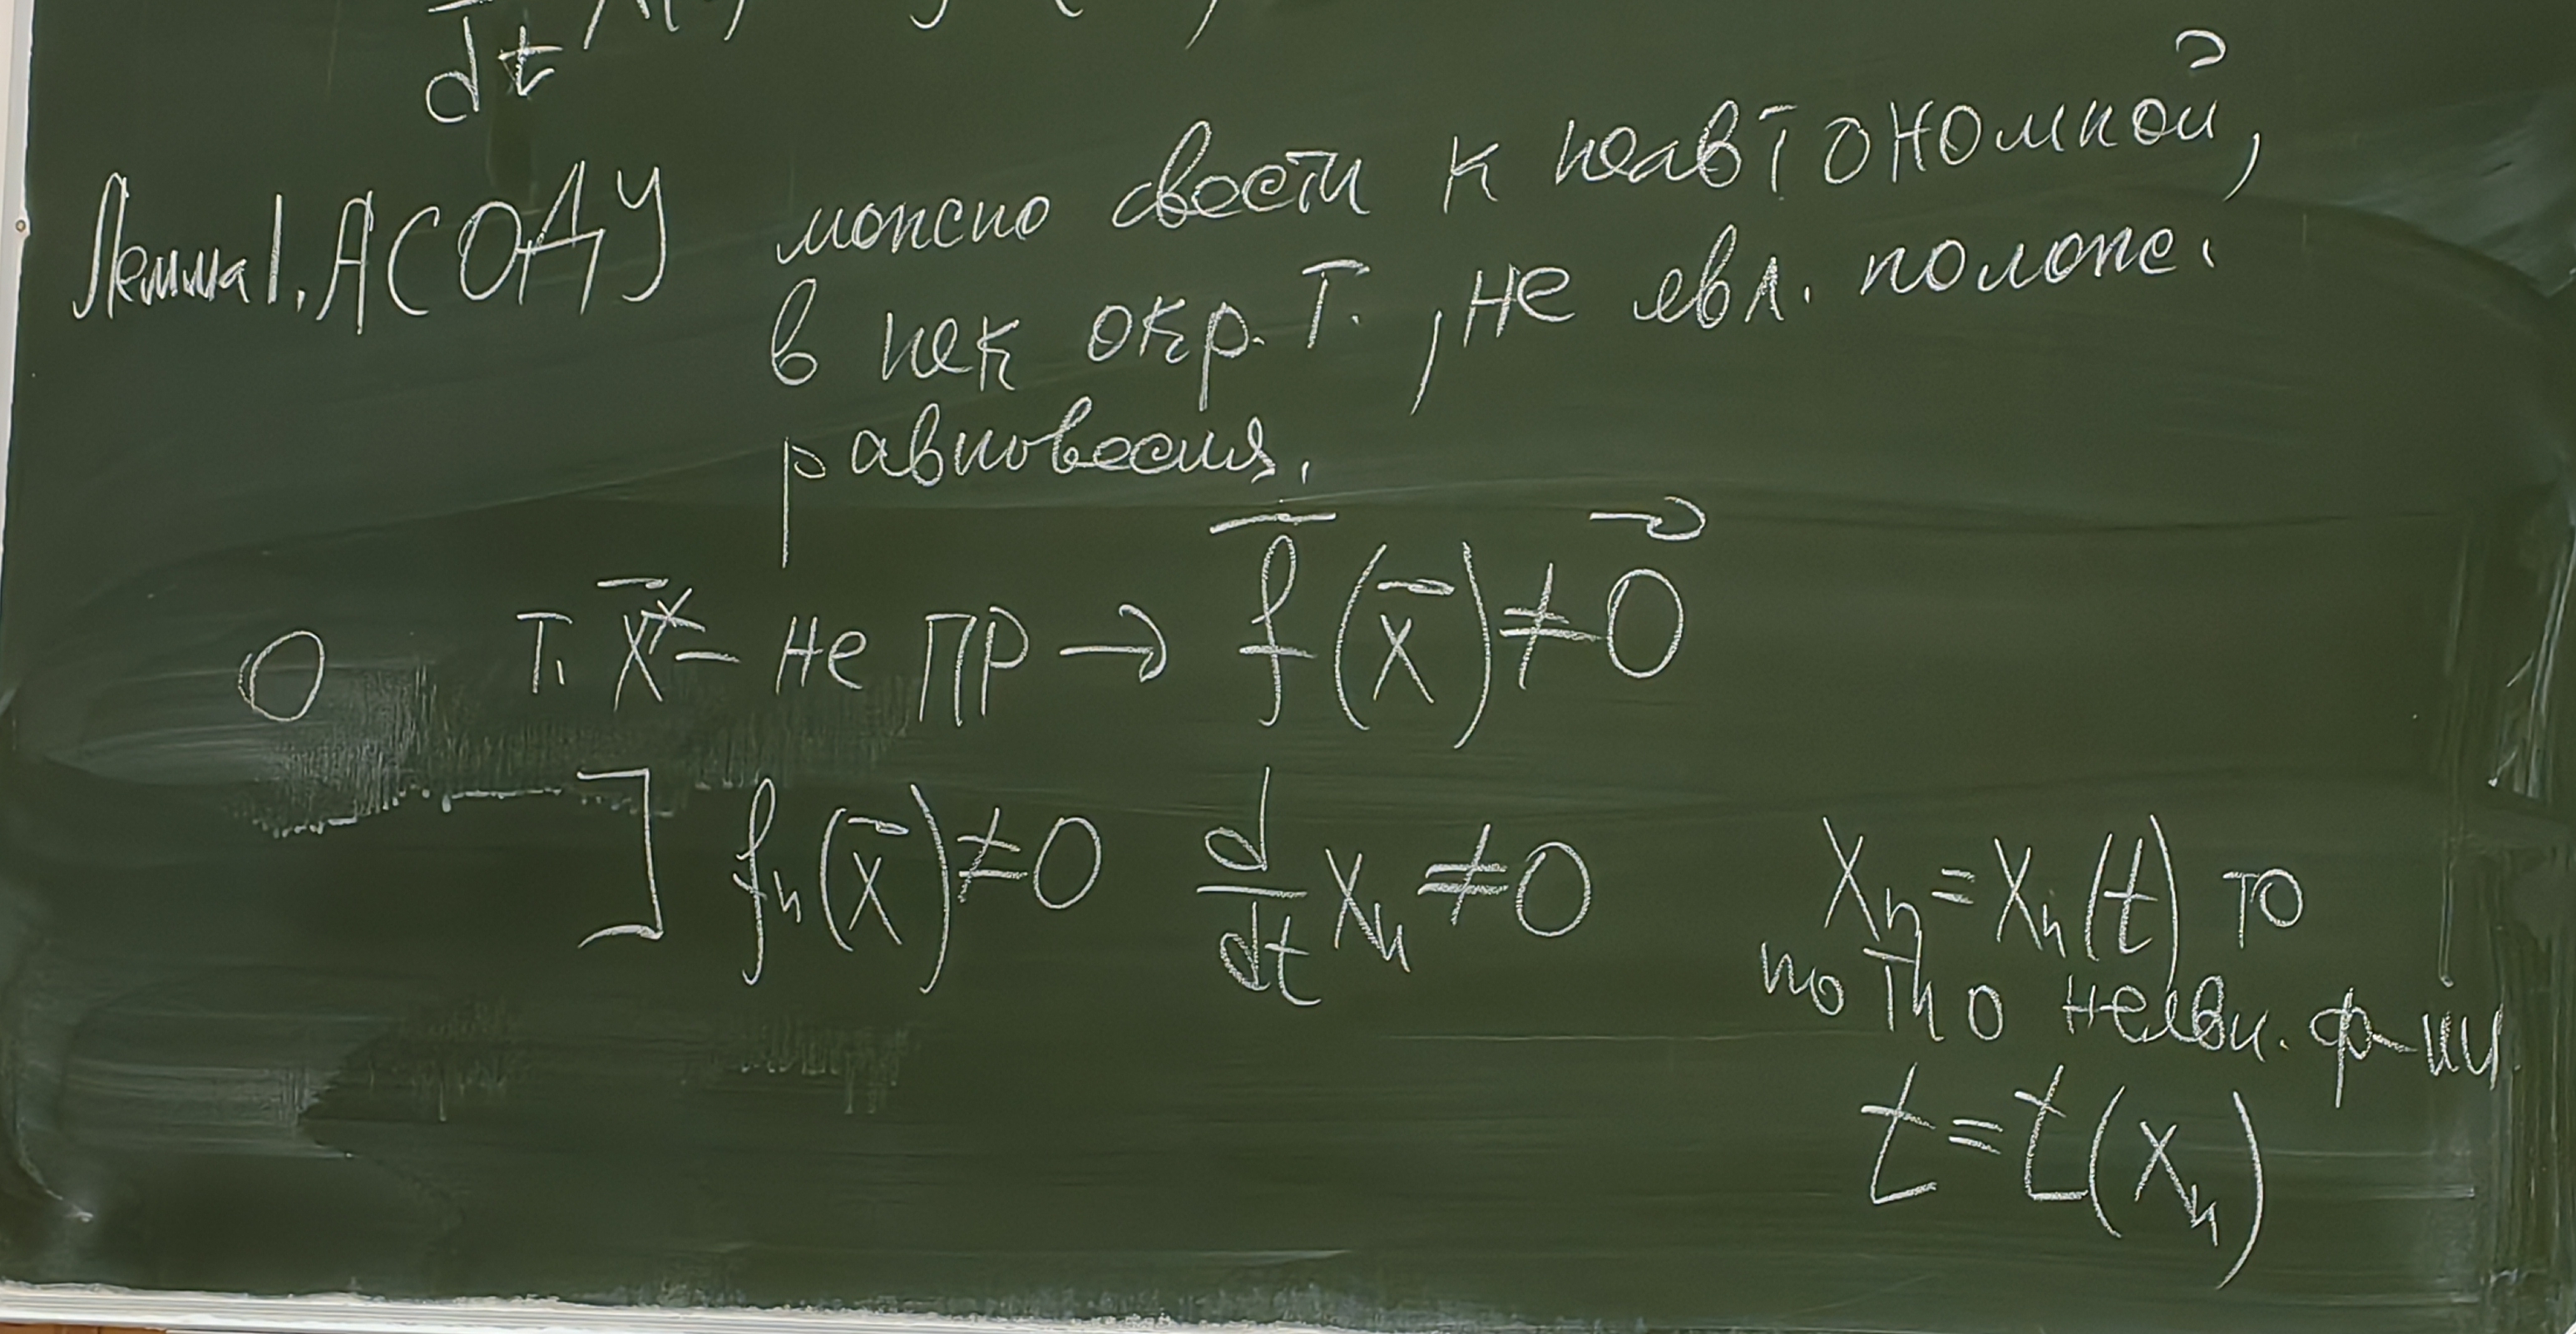 dt
Лемма 1. АСОДУ можно свести к неавтономной,
в нек окр. т. , не явл. полож.
равновесия.
О т. x⃗* – не ПР → f⃗(x⃗) ≠ 0⃗
] fₙ(x⃗) ≠ 0 d/dt xₙ ≠ 0 xₙ = xₙ(t) то
по т о неявн. ф-ии
t = t(xₙ)